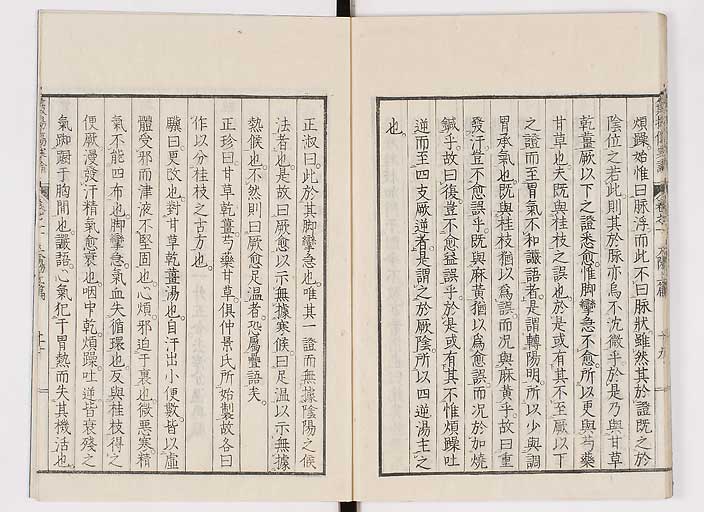 煩躁始惟曰脈浮而此不曰脈狀雖然其於證既之於
陰位之若此則其於脈亦烏不沈微乎於是乃與甘草
乾薑厥以下之證悉愈惟脚攣急不愈所以更與芍藥
甘草也夫既與桂枝之誤也於是或有其不至厥以下
之證而至胃氣不和讝語者是謂轉陽明所以少與調
胃承氣也既與桂枝猶以爲誤而况與麻黃乎故曰重
發汗豈不愈誤乎既與麻黃猶以爲愈誤而况於加燒
鍼乎故曰復豈不愈益誤乎於是或有其不惟煩躁吐
逆而至四支厥逆者是謂之於厥陰所以四逆湯主之
也
正淑曰此於其脚攣急也唯其一證而無據陰陽之候
法者也是故曰厥愈以示無據寒候曰足溫以示無據
熱候也不然則曰厥愈足溫者恐屬疊語矣
正珍曰甘草乾薑芍藥甘草俱仲景氏所始製故各曰
作以分桂枝之古方也
驥曰更改也對甘草乾薑湯也自汗出小便數皆以虛
體受邪而津液不堅固也心煩邪迫于裏也微惡寒精
氣不能四布也脚攣急氣血失循環也反與桂枝得之
便厥漫發汗精氣愈衰也咽中乾煩躁吐逆皆衰殘之
氣踟躕于胸間也讝語心氣犯于胃熱而失其機活也